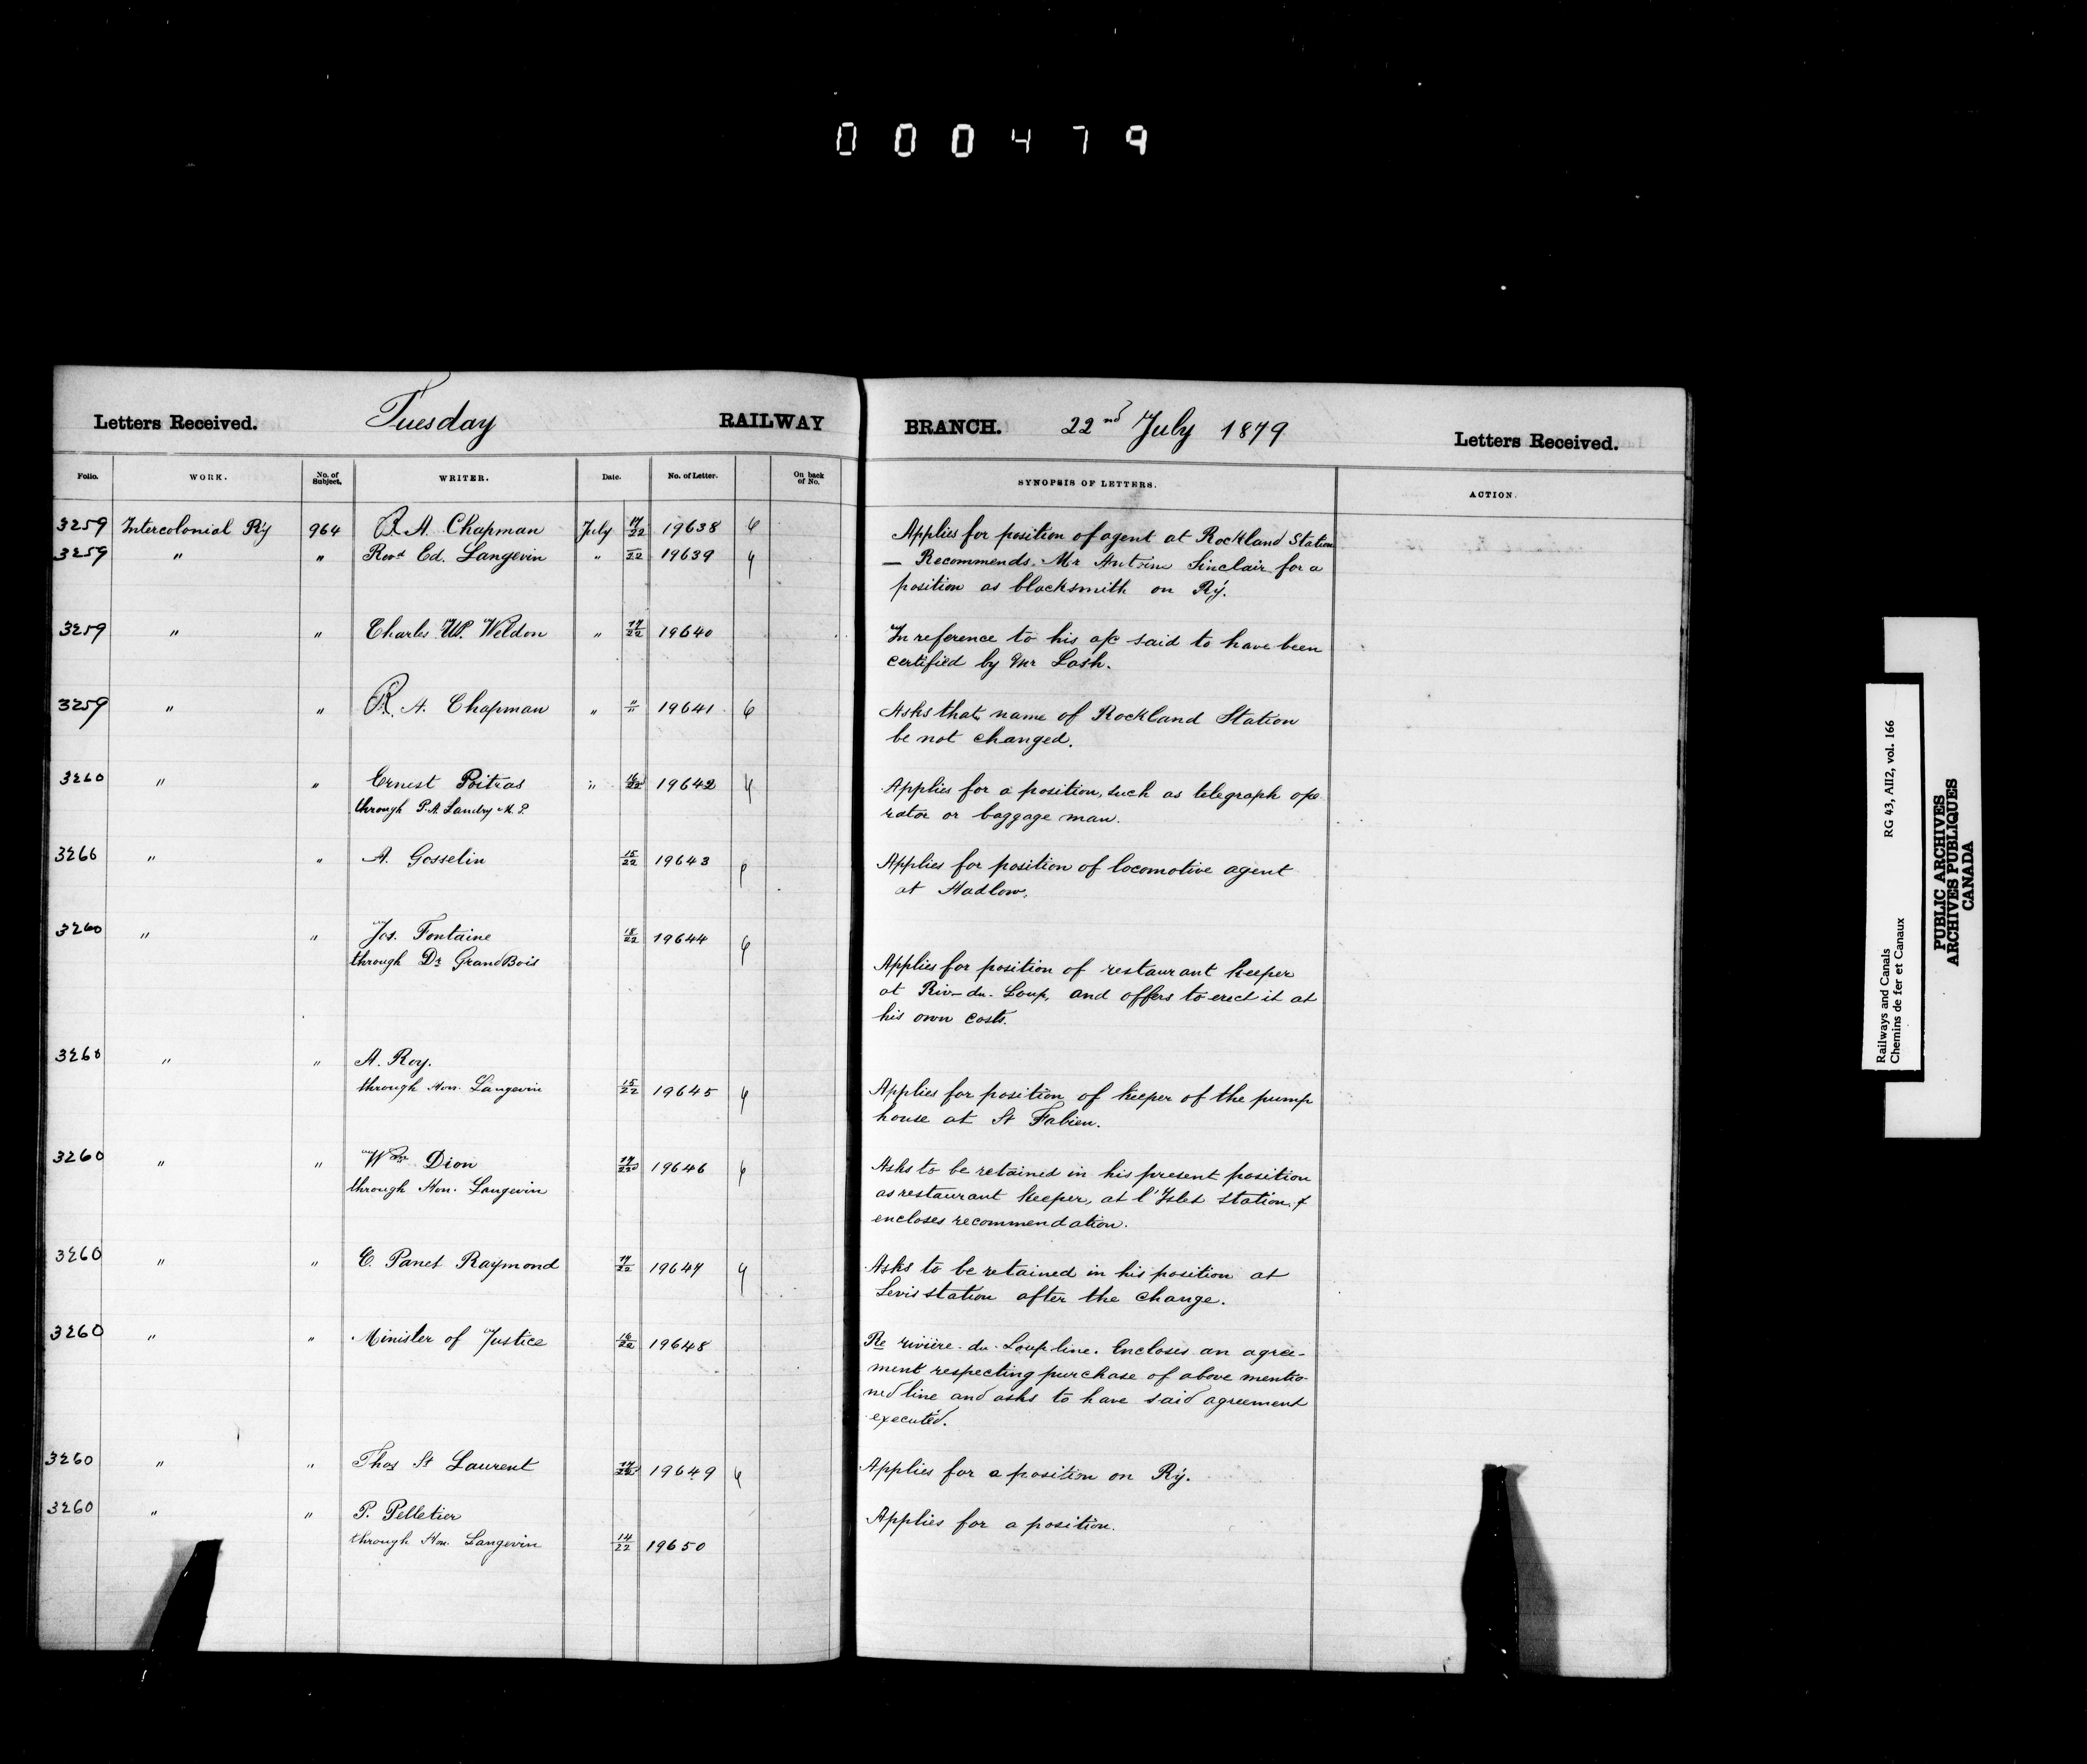 000479
Letters Received. Tuesday RAILWAY BRANCH. 22nd July 1879 Letters Received.
Folio. WORK. No. of Subject. WRITER. Date. No. of Letter. On back of No. SYNOPSIS OF LETTERS. ACTION.
3259 Intercolonial Ry 964 R. A. Chapman July 17/22 19638 Applies for position of agent at Rockland Station
3259 " " Revd Ed. Langevin " —/22 19639 — Recommends Mr Antoine Sinclair for a
position as blacksmith on Ry.
3259 " " Charles W. Weldon " 17/22 19640 In reference to his a/c said to have been
certified by Mr Lash.
3259 " " R. A. Chapman " "/" 19641 6 Asks that name of Rockland Station
be not changed.
3260 " " Ernest Poitras " 16/22 19642 Applies for a position, such as telegraph ope
through P. A. Landry M. P. rator or baggage man.
3260 " " A. Gosselin 15/22 19643 Applies for position of locomotive agent
at Hadlow.
3260 " " Jos. Fontaine 18/22 19644
through Dr GrandBois Applies for position of restaurant keeper
at Riv-du-Loup, and offers to erect it at
his own costs.
3260 " " A. Roy.
through Hon. Langevin 15/22 19645 Applies for position of keeper of the pump
house at St Fabien.
3260 " " Wm Dion 17/22 19646 Asks to be retained in his present position
through Hon. Langevin as restaurant keeper, at l'Islet station, &
encloses recommendation.
3260 " " E. Panet Raymond 17/22 19647 Asks to be retained in his position at
Levis station after the change.
3260 " " Minister of Justice 16/22 19648 Re rivière-du-Loup line. Encloses an agree-
ment respecting purchase of above mentio-
ned line and asks to have said agreement
executed.
3260 " " Thos St Laurent 17/22 19649 Applies for a position on Ry.
3260 " " P. Pelletier Applies for a position.
through Hon. Langevin 14/22 19650
Railways and Canals RG 43, AII2, vol. 166
Chemins de fer et Canaux
PUBLIC ARCHIVES
ARCHIVES PUBLIQUES
CANADA